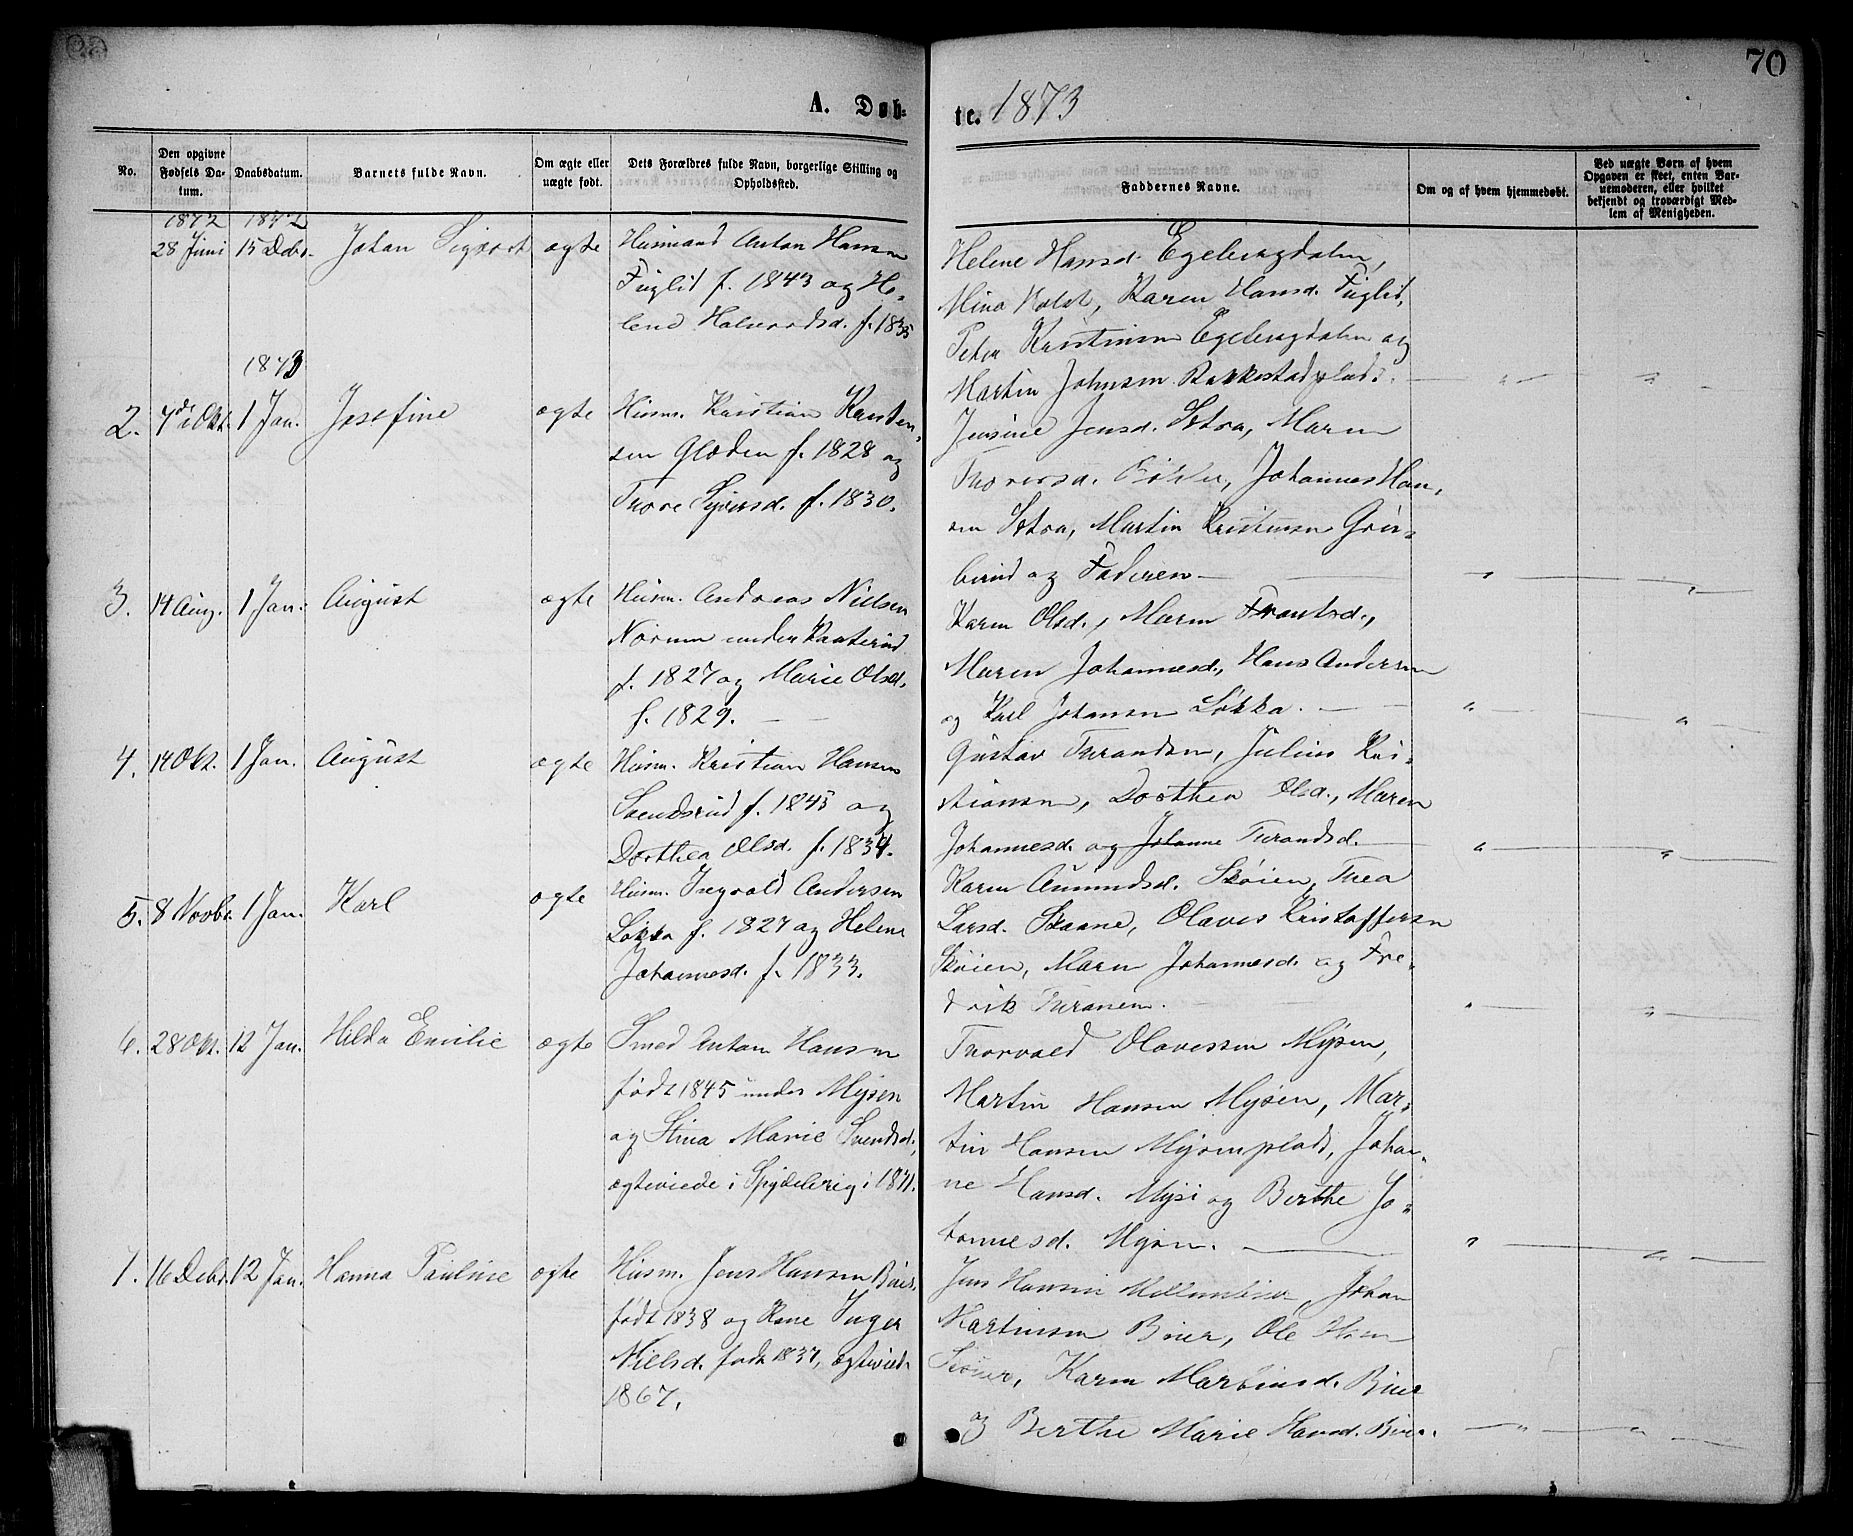 70
A. Døb-
te. 1873
No.
Den opgivne Fødsels Da-tum.
Daabsdatum.
Barnets fulde Navn.
Om ægte eller uægte født.
Dets Forældres fulde Navn, borgerlige Stilling og Opholdssted.
Faddernes Navne.
Om og af hvem hjemmedøbt.
Ved uægte Børn af hvem Opgaven er skeet, enten Bar-nemoderen, eller hvilket bekjendt og troværdigt Med-lem af Menigheden.
1872 1872
28 Juni 15 Debr. Johan Sigvart ægte Husmand Anton Hansen
Fuglid f. 1843 og He-
lene Halvordsd. f. 1835
Helene Hansd. Egebergdalen,
Mina Holst, Karen Hansd. Fuglid,
Peter Kristiansen Egebergdalen og
Martin Johnsen Rakkestadplads. — " — "
1873
2. 4de Okt. 1 Jan. Josefine ægte Husm. Kristian Karsten-
sen Gloden f. 1828 og
Thore Syversd. f. 1830.
Jensine Jensd. Sætra, Maren
Thoresd. Johannes Han-
sen Sætra, Martin Kristiansen
og Faderen — " — "
3. 14 Aug. 1 Jan. August ægte Husm. Andreas Nielsen
Norum under
f. 1827 og Marie Olsd.
f. 1829. —
Karen Olsd., Maren Trantsd.,
Maren Johannesd., Hans Andersen
og Karl Johansen Løkka. — " — "
4. 14 Okt. 1 Jan. August ægte Husm. Kristian Hansen
Svendsrud f. 1845 og
Dorthea Olsd. f. 1834.
Gustav Turandsen, Julius Kri-
stiansen, Dorthea Olsd., Maren
Johannesd. og Johanne Turandsd. — " — "
5. 8 Novbr. 1 Jan. Karl ægte Husm. Ingvald Andersen
Løkka f. 1827 og Helene
Johannesd. f. 1833.
Karen Amundsd. Skøien, Thea
Larsd. Skaane, Olaves Kristoffersen
Skøien, Maren Johannesd. og Fre-
drik Turansen. — " — "
6. 28 Okt. 12 Jan. Hilda Emilie ægte Smed Anton Hansen
født 1845 under Mysen
og Stina Marie Svendsd.,
ægteviede i Spydeberg i 1871.
Thorvald Olavessen Mysen,
Martin Hansen Mysen, Mar-
tin Hansen Mysenplads, Johan-
ne Hansd. Mysen og Berthe Jo-
hannesd. Mysen. — " — "
7. 16 Debr. 12 Jan. Hanna Pauline ægte Husm. Jens Hansen Bøier,
født 1838 og Kone Inger
Nielsd. født 1837, ægteviede
1867.
Jens Hansen Johan
Martinsen Bøier, Ole
Karen Martinsd. Bøier
og Berthe Marie Hansd. Bøier. — " — "